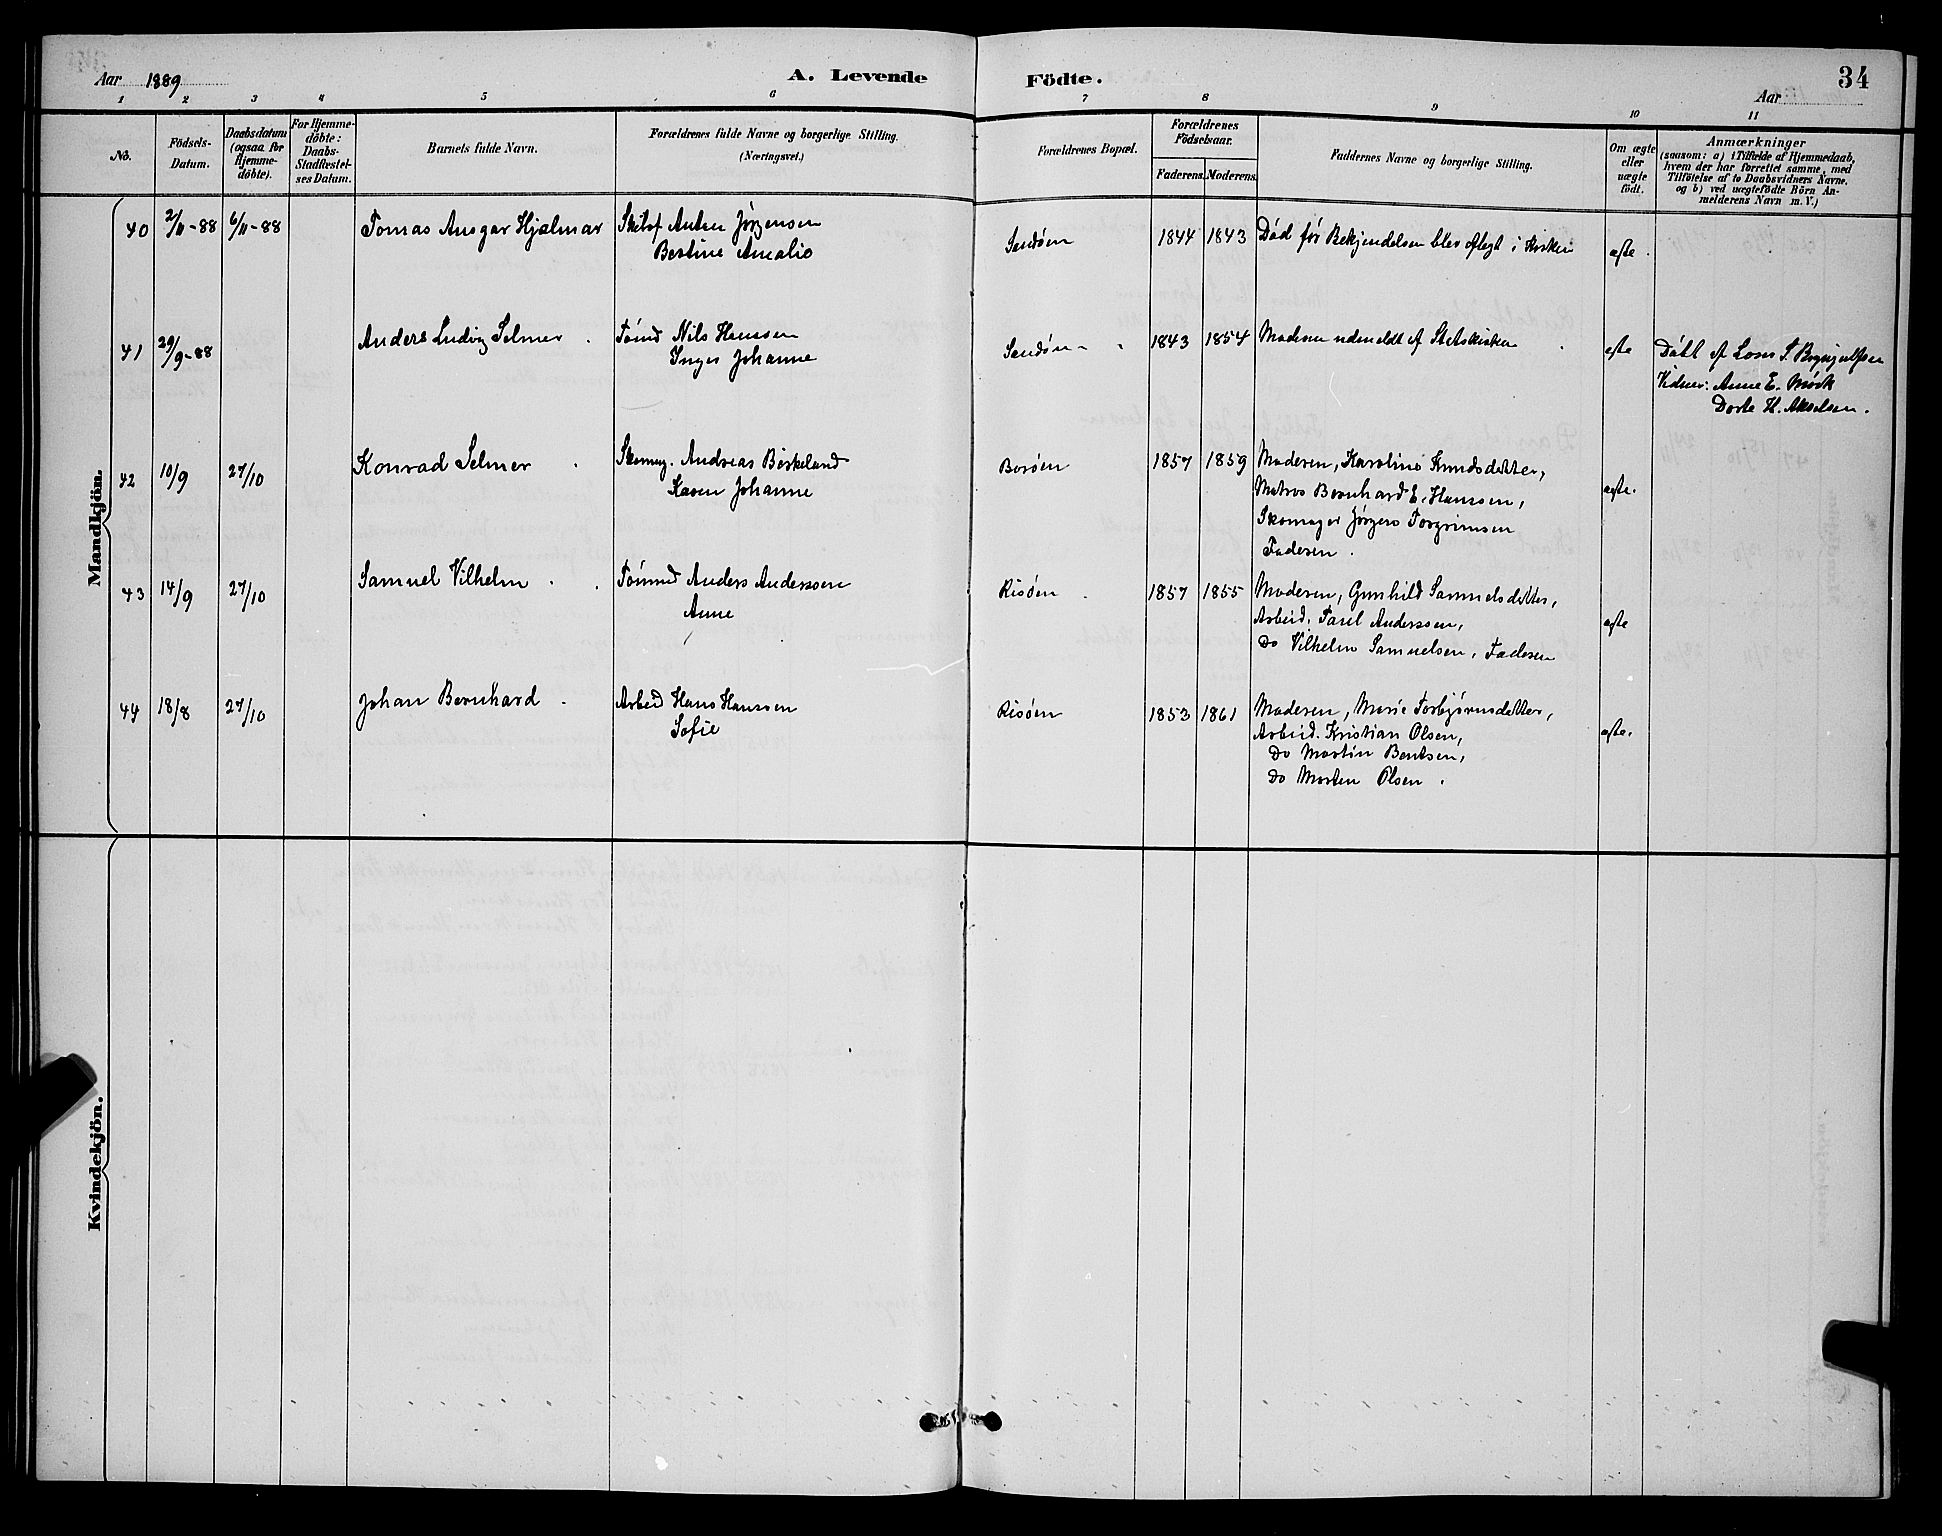 Aar 1889
A. Levende Födte.
34
Aar
1 2 3 4 5 6 7 8 9 10 11
No.
Födsels-
Datum.
Daabsdatum
(ogsaa for
Hjemme-
döbte).
For Hjemme-
döbte:
Daabs-
Stadfæstel-
ses Datum.
Barnets fulde Navn.
Forældrenes fulde Navne og borgerlige Stilling.
(Næringsvei.)
Forældrenes Bopæl.
Forældrenes
Födselsaar.
Faderens. Moderens.
Faddernes Navne og borgerlige Stilling.
Om ægte
eller
uægte
födt.
Anmærkninger
(saasom: a) i Tilfælde af Hjemmedaab,
hvem der har forrettet samme, med
Tilföielse af to Daabsvidners Navne,
og b) ved uægtefödte Börn An-
melderens Navn m. V.)
Mandkjön.
40 2/11-88 6/11-88 Tomas Ansgar Hjalmar Skibsf Anton Jørgensen Sandøen 1844 1843 Død før Bekjendelsen blev aflagt i Kirken ægte.
Bertine Amalie
41 29/9-88 Anders Ludvig Selmer. Tømd Nils Hanssen Sandøen 1843 1854 Moderen udmeldt af Statskirken ægte Døbt af Lars T. Brynjulfsen
Inger Johanne
Vidner: Anne E. Mørk
Dorte H. Akselsen.
42 10/9 27/10 Konrad Selmer. Skomag. Andreas Birkeland Borøen 1857 1859 Moderen, Karoline Knudsdatter, ægte.
Karen Johanne
Matros Bernhard E. Hanssen,
Skomager Jørgen Torgrimsen
Faderen.
43 14/9 27/10 Samuel Vilhelm. Tømmd Anders Anderssen Risøen 1857 1855 Moderen, Gunhild Samuelsdatter, ægte
Anne
Arbeid. Paul Anderssen,
Do Vilhelm Samuelsen, Faderen
44 18/8 27/10 Johan Bernhard. Arbeid Hans Hanssen Risøen 1853 1861 Moderen, Marie Torbjørnsdatter, ægte.
Sofie
Arbeid. Kristian Olsen,
Do Martin Bentsen,
Do Morten Olsen.
Kvindekjön.